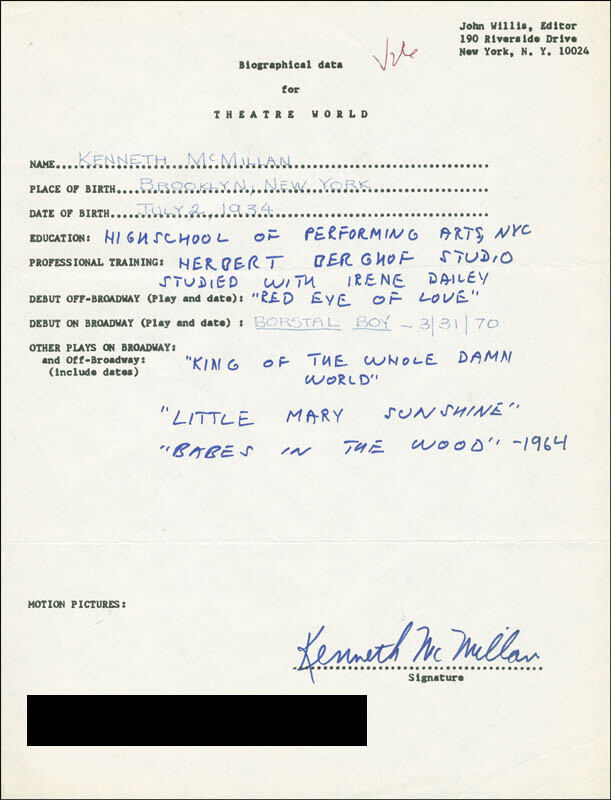 John Willis, Editor
190 Riverside Drive
New York, N. Y. 10024
Biographical data
for
THEATRE WORLD
NAME...KENNETH McMILLAN...
PLACE OF BIRTH...BROOKLYN, NEW YORK...
DATE OF BIRTH...JULY 2 1934...
EDUCATION: HIGHSCHOOL OF PERFORMING ARTS, NYC
PROFESSIONAL TRAINING: HERBERT BERGHOF STUDIO
STUDIED WITH IRENE DAILEY
DEBUT OFF-BROADWAY (Play and date): "RED EYE OF LOVE"
DEBUT ON BROADWAY (Play and date) : BORSTAL BOY - 3/31/70
OTHER PLAYS ON BROADWAY:
and Off-Broadway: "KING OF THE WHOLE DAMN
(include dates) WORLD"
"LITTLE MARY SUNSHINE"
"BABES IN THE WOOD" -1964
MOTION PICTURES:
Kenneth McMillan
Signature